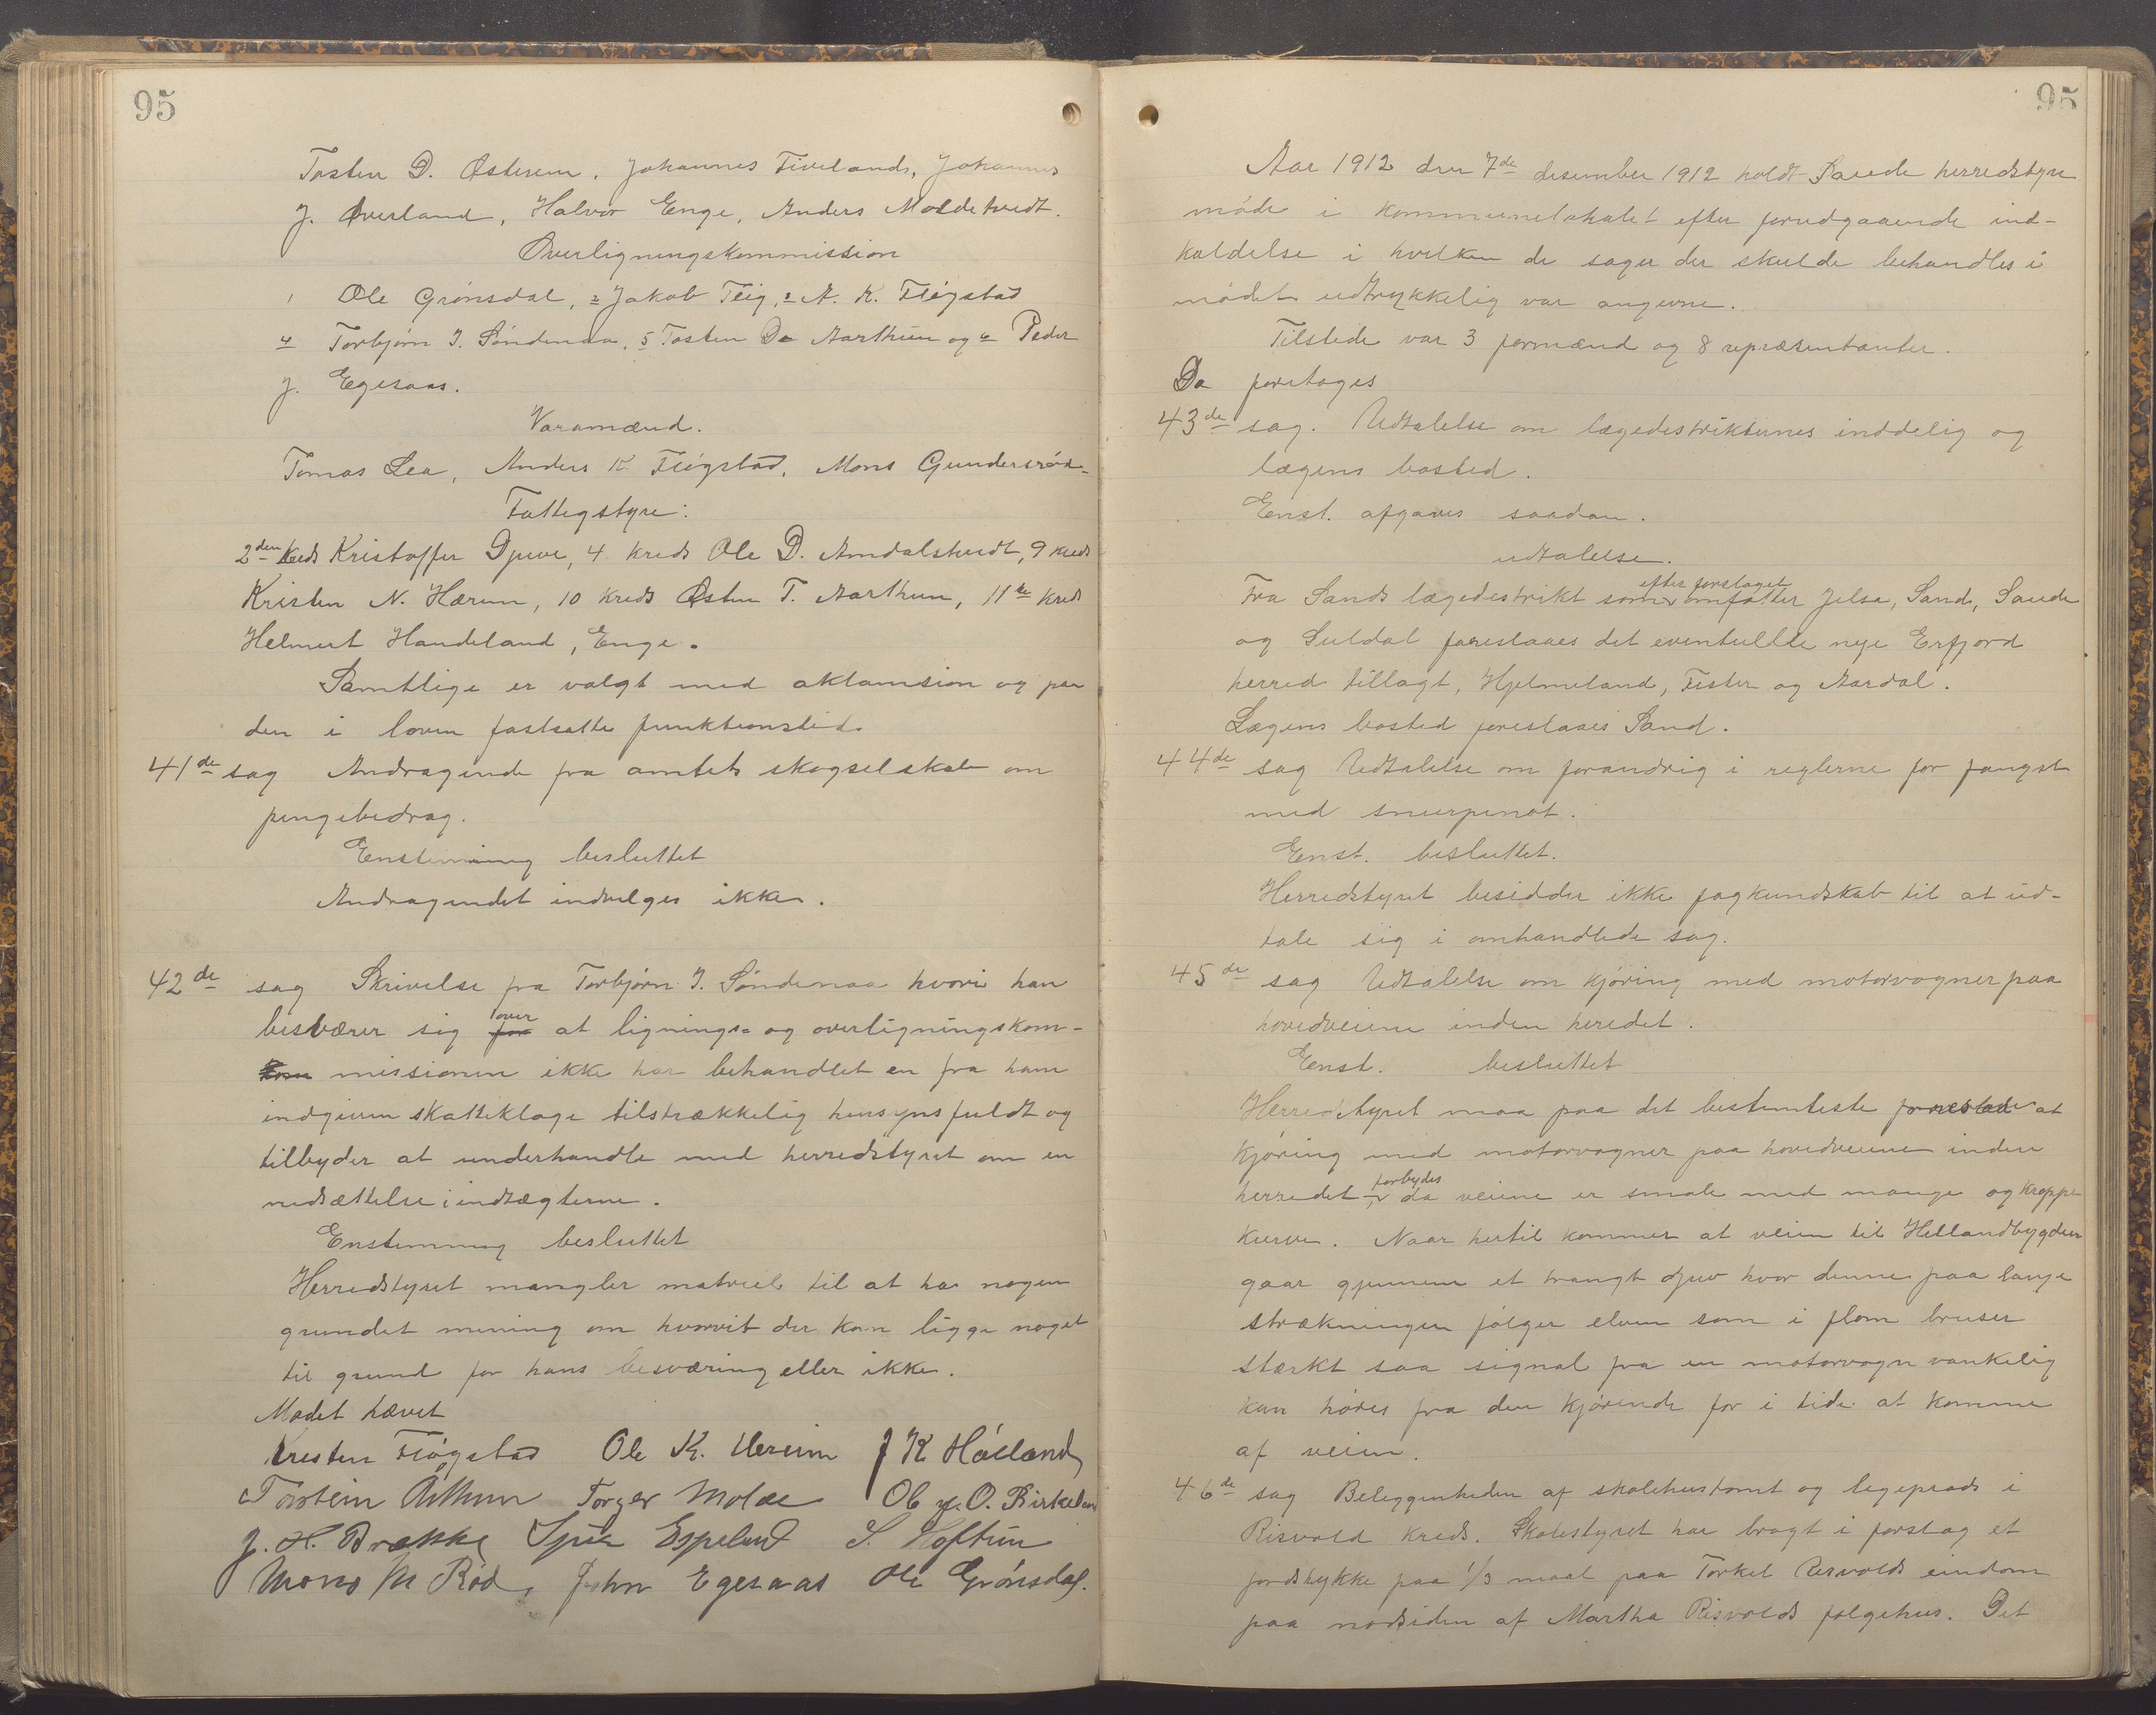 95
Tosten D. Østerem, Johannes Tiveland, Johannes
J. Øverland, Halvor Enge, Anders Moldetvedt.
Overligningskommission
1 Ole Grønsdal, 2 Jakob Teig, 3 A. K. Fløgstad
4 Torbjørn I. Søndenaa, 5 Tosten D Aarthun og 6 Peder
J. Egesaas.
Varamænd.
Tomas Lea, Anders K. Fløgstad, Mons Gundersrød.
Fattigstyre:
2den kreds Kristoffer Djuve, 4 kreds Ole D. Amdalstvedt, 9 kreds
Kristen N. Hærem, 10 kreds Østen T. Aarthun, 11te kreds
Helmert Handeland, Enge.
Samtlige er valgt med aklamsion og paa
den i loven fastsatte funktionstid.
41de sag Andragende fra amtets skogselskab om
pengebedrag.
Enstemmig besluttet
Andragendet indvelges ikke.
42de sag Skrivelse fra Torbjørn I. Søndenaa hvori han
besværer sig for over at lignings- og overligningskom-
kom missionen ikke har behandlet en fra ham
indgiven skatteklage tilstrækkelig hensynsfuldt og
tilbyder at underhandle med herredstyret om en
nedsættelse i indtægterne.
Enstemmig besluttet
Herredstyret mangler matriel til at ha nogen
grundet mening om hvorvit der kan ligge noget
til grund for hans besværing eller ikke.
Mødet hævet
Kresten Fløgstad Ole K. Hereim J K Hólland
Torstein Århun Torger Molde Ole O. Birkeland
J. H. Brække Espeland S. Hoftun
Mons M Rød, John Egesaas Ole Grønsdal.
95
Aar 1912 den 7de desember 1912 holdt Saude herredstyre
møde i kommunelokalet efter forudgaaende ind-
kaldelse i hvilken de sager der skulde behandles i
mødet udtrykkelig var angivne.
Tilstede var 3 formænd og 8 repræsentanter.
Da foretoges
43de sag. Udtalelse om lægedestriktenes inddelig og
lægens bosted.
Enst. afgaves saadan.
udtalelse.
Fra Sands lægedestrikt som efter forslaget omfatter Jelsa, Sand, Saude
og Suldal foreslaaes det eventuelle nye Erfjord
herred tillagt, Hjelmeland, Fister og Aardal.
Lægens bosted foreslaaes Sand.
44de sag Udtalelse om forandrig i reglerne for fangst
med snurpenot.
Enst. besluttet.
Herredstyret besidder ikke fagkundskab til at ud-
tale sig i omhandlede sag.
45de sag Udtalelse om kjøring med motorvogner paa
hovedveiene inden heredet.
Enst. besluttet
Herredstyret maa paa det bestemteste foreslaa at
kjøring med motorvogner paa hovedveiene inden
herredet forbydes da veiene er smale med mange og krappe
kurver. Naar hertil kommer at veien til Hellandbygden
gaar gjennem et trangt djuv hvor denne paa lange
strækninger følger elven som i flom bruser
stærkt saa signal fra en motorvogn vankelig
kan høres fra den kjørende for i tide at komme
af veien.
46de sag Beliggenheden af skolehustomt og legeplads i
Risvold kreds. Skolestyret har bragt i forslag et
jordstykke paa 1/3 maal paa Torkel Risvolds eindom
paa nordsiden af Martha Risvolds følgehus. Det